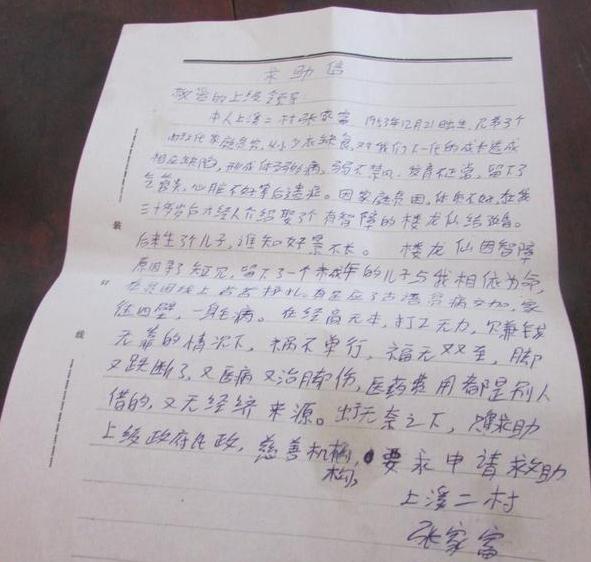 求助信
敬爱的上级领导
本人上溪二村张家富 1953年12月21日出生,兄弟3个
家庭贫穷,从小少衣缺食,对我们下一代的成长造成
相应缺陷,形成体弱多病,弱不禁风,发育不正常,留下了
气管炎,心脏不好等后遗症。因家庭贫困,体质不好,在我
三十岁后才经人介绍娶了个有智障的楼龙仙结婚。
后来生了个儿子,谁知好景不长。楼龙仙因智障
原因寻了短见,留下了一个未成年的儿子与我相依为命,
在贫困线上古语贫病交加,家
徒四壁,一身毛病。在经商无本,打工无力,
无靠的情况下,祸不单行,福无双至,脚
又跌断了,又医病又治脚伤,医药费用都是别人
借的,又无经济来源。出于无奈之下,求助
上级政府民政,慈善机构,要求申请救助
构,
上溪二村
张家富
装
订
线